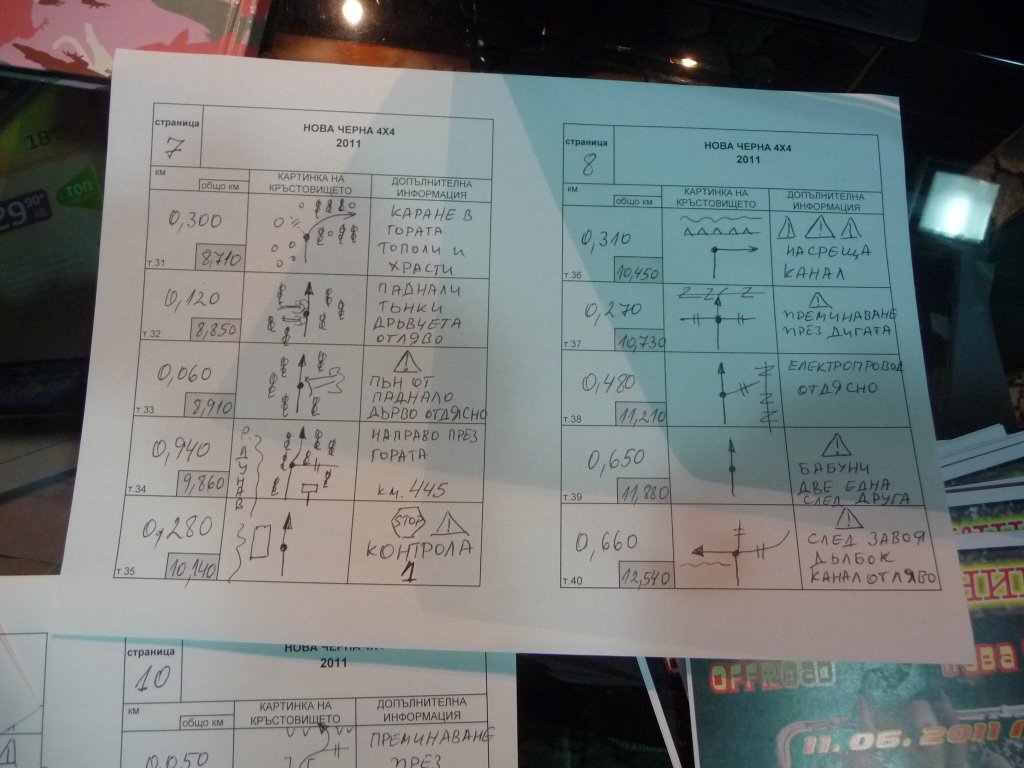 страница
7
НОВА ЧЕРНА 4X4
2011
км
общо км
КАРТИНКА НА
КРЪСТОВИЩЕТО
ДОПЪЛНИТЕЛНА
ИНФОРМАЦИЯ
0,300
т.31
8,710
КАРАНЕ В
ГОРАТА
ТОПОЛИ И
ХРАСТИ
0,120
т.32
8,850
ПАДНАЛИ
ТЪНКИ
ДРЪВЧЕТА
ОТЛЯВО
0,060
т.33
8,910
ПЪН ОТ
ПАДНАЛО
ДЪРВО ОТДЯСНО
0,940
т.34
9,860
Р. ДУНАВ
НАПРАВО ПРЕЗ
ГОРАТА
КМ. 445
0,280
т.35
10,140
STOP
КОНТРОЛА
1
страница
8
НОВА ЧЕРНА 4X4
2011
км
общо км
КАРТИНКА НА
КРЪСТОВИЩЕТО
ДОПЪЛНИТЕЛНА
ИНФОРМАЦИЯ
0,310
т.36
10,450
НАСРЕЩА
КАНАЛ
0,270
т.37
10,730
ПРЕМИНАВАНЕ
ПРЕЗ ДИГАТА
0,480
т.38
11,210
ЕЛЕКТРОПРОВОД
ОТДЯСНО
0,650
т.39
11,880
БАБУНИ
ДВЕ ЕДНА
СЛЕД ДРУГА
0,660
т.40
12,540
СЛЕД ЗАВОЯ
ДЪЛБОК
КАНАЛ ОТЛЯВО
страница
10
НОВА ЧЕРНА 4X4
2011
км
общо км
КАРТИНКА НА
КРЪСТОВИЩЕТО
ДОПЪЛНИТЕЛНА
ИНФОРМАЦИЯ
0,050
ПРЕМИНАВАНЕ
ПРЕЗ
18
29.90
ТОП
OFFROAD
11.06.2011